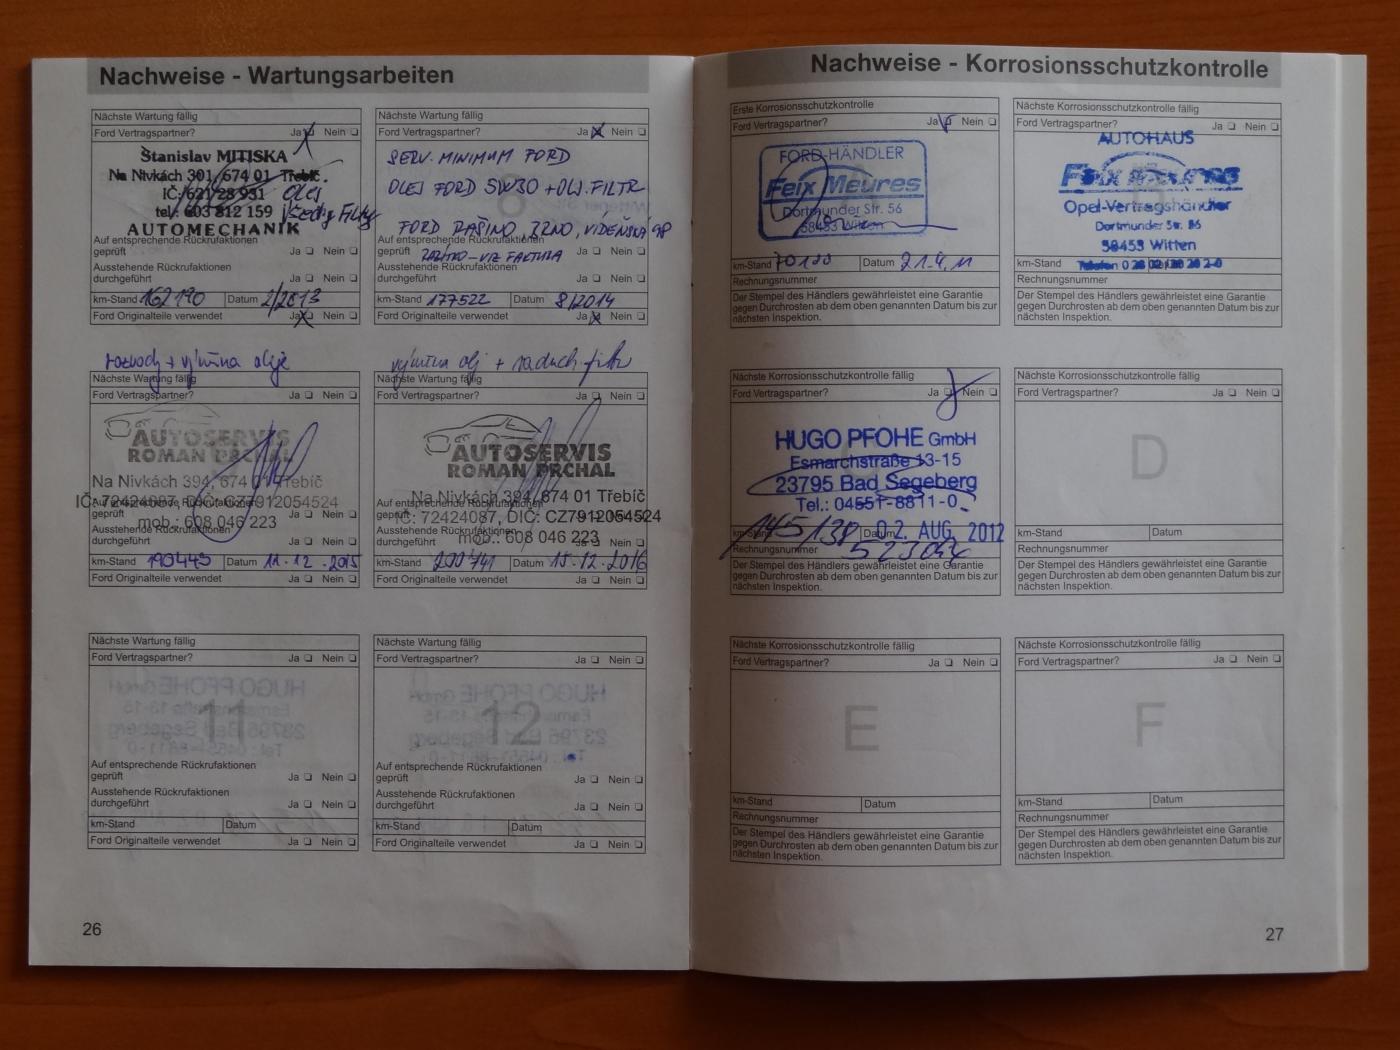 Nachweise - Wartungsarbeiten
Nächste Wartung fällig
Ford Vertragspartner? Ja Nein
Stanislav MITISKA
Na Nivkách 301, 674 01 Třebíč
IČ: 621 28 931
tel.: 603 812 159
AUTOMECHANIK
olej
všechny Filtry
Auf entsprechende Rückrufaktionen
geprüft Ja Nein
Ausstehende Rückrufaktionen
durchgeführt Ja Nein
km-Stand 162190 Datum 2/2013
Ford Originalteile verwendet Ja Nein
Nächste Wartung fällig
Ford Vertragspartner? Ja Nein
SERV. MINIMUM FORD
OLEJ FORD 5W30 + OLJ. FILTR
FORD RAŠINO, BRNO, VÍDEŇSKÁ
Auf entsprechende Rückrufaktionen
geprüft Ja Nein
RAZÍTKO - VIZ FAKTURA
Ausstehende Rückrufaktionen
durchgeführt Ja Nein
km-Stand 177522 Datum 8/2014
Ford Originalteile verwendet Ja Nein
rozvody + výměna oleje
Nächste Wartung fällig
Ford Vertragspartner? Ja Nein
AUTOSERVIS
ROMAN PRCHAL
Na Nivkách 394, 674 01 Třebíč
IČ: 72424087, DIČ: CZ7912054524
mob.: 608 046 223
Auf entsprechende Rückrufaktionen
geprüft Ja Nein
Ausstehende Rückrufaktionen
durchgeführt Ja Nein
km-Stand 190445 Datum 11.12.2015
Ford Originalteile verwendet Ja Nein
výměna olj + vzduch filtr
Nächste Wartung fällig
Ford Vertragspartner? Ja Nein
AUTOSERVIS
ROMAN PRCHAL
Na Nivkách 394, 674 01 Třebíč
IČ: 72424087, DIČ: CZ7912054524
mob.: 608 046 223
Auf entsprechende Rückrufaktionen
geprüft Ja Nein
Ausstehende Rückrufaktionen
durchgeführt Ja Nein
km-Stand 200741 Datum 15.12.2016
Ford Originalteile verwendet Ja Nein
Nächste Wartung fällig
Ford Vertragspartner? Ja Nein
11
Auf entsprechende Rückrufaktionen
geprüft Ja Nein
Ausstehende Rückrufaktionen
durchgeführt Ja Nein
km-Stand Datum
Ford Originalteile verwendet Ja Nein
Nächste Wartung fällig
Ford Vertragspartner? Ja Nein
12
Auf entsprechende Rückrufaktionen
geprüft Ja Nein
Ausstehende Rückrufaktionen
durchgeführt Ja Nein
km-Stand Datum
Ford Originalteile verwendet Ja Nein
26
Nachweise - Korrosionsschutzkontrolle
Erste Korrosionsschutzkontrolle
Ford Vertragspartner? Ja Nein
FORD-HÄNDLER
Feix Meures
Dortmunder Str. 56
58453 Witten
km-Stand 70100 Datum 21.4.11
Rechnungsnummer
Der Stempel des Händlers gewährleistet eine Garantie
gegen Durchrosten ab dem oben genannten Datum bis zur
nächsten Inspektion.
Nächste Korrosionsschutzkontrolle fällig
Ford Vertragspartner? Ja Nein
AUTOHAUS
Feix Meures
Opel-Vertragshändler
Dortmunder Str. 56
58453 Witten
km-Stand Telefon
Rechnungsnummer
Der Stempel des Händlers gewährleistet eine Garantie
gegen Durchrosten ab dem oben genannten Datum bis zur
nächsten Inspektion.
Nächste Korrosionsschutzkontrolle fällig
Ford Vertragspartner? Ja Nein
HUGO PFOHE GmbH
Esmarchstraße 13-15
23795 Bad Segeberg
Tel.: 04551-8811-0
km-Stand 145138 Datum 02. AUG. 2012
Rechnungsnummer
Der Stempel des Händlers gewährleistet eine Garantie
gegen Durchrosten ab dem oben genannten Datum bis zur
nächsten Inspektion.
Nächste Korrosionsschutzkontrolle fällig
Ford Vertragspartner? Ja Nein
D
km-Stand Datum
Rechnungsnummer
Der Stempel des Händlers gewährleistet eine Garantie
gegen Durchrosten ab dem oben genannten Datum bis zur
nächsten Inspektion.
Nächste Korrosionsschutzkontrolle fällig
Ford Vertragspartner? Ja Nein
E
km-Stand Datum
Rechnungsnummer
Der Stempel des Händlers gewährleistet eine Garantie
gegen Durchrosten ab dem oben genannten Datum bis zur
nächsten Inspektion.
Nächste Korrosionsschutzkontrolle fällig
Ford Vertragspartner? Ja Nein
F
km-Stand Datum
Rechnungsnummer
Der Stempel des Händlers gewährleistet eine Garantie
gegen Durchrosten ab dem oben genannten Datum bis zur
nächsten Inspektion.
27